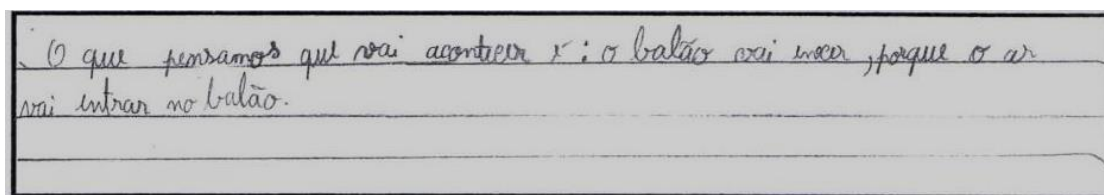 . O que pensamos que vai acontecer r : o balão vai encer, porque o ar
vai entrar no balão.